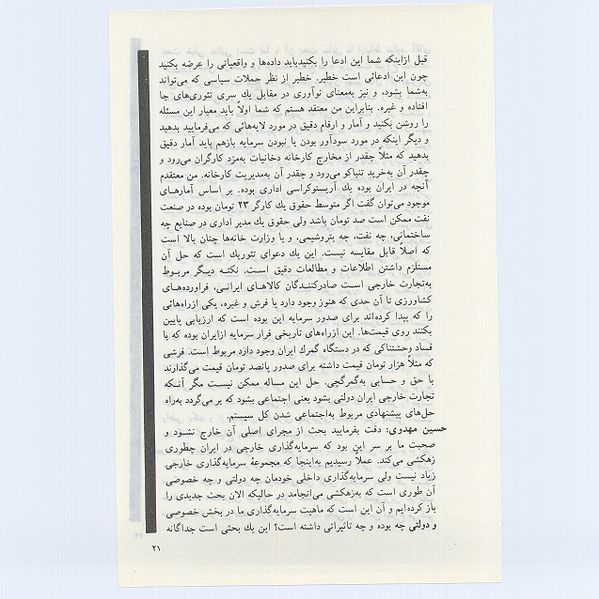 قبل ازاینکه شما این ادعا را بکنیدباید داده‌ها و واقعیاتی را عرضه بکنید
چون این ادعائی است خطیر. خطیر از نظر حملات سیاسی که می‌تواند
به‌شما بشود، و نیز به‌معنای نوآوری در مقابل یك سری تئوری‌های جا
افتاده و غیره. بنابراین من معتقد هستم که شما اولاً باید معیار این مسئله
را روشن بکنید و آمار و ارقام دقیق در مورد لایه‌هائی که می‌فرمایید بدهید
و دیگر اینکه در مورد سودآور بودن یا نبودن سرمایه بازهم باید آمار دقیق
بدهید که مثلاً چقدر از مخارج کارخانه دخانیات به‌مزد کارگران می‌رود و
چقدر آن به‌خرید تنباکو می‌رود و چقدر آن به‌مدیریت کارخانه. من معتقدم
آنچه در ایران بوده یك آریستوکراسی اداری بوده. بر اساس آمارهـای
موجود می‌توان گفت اگر متوسط حقوق یك کارگر ۲۳ تومان بوده در صنعت
نفت ممکن است صد تومان باشد ولی حقوق یك مدیر اداری در صنایع چه
ساختمانی، چه نفت، چه پتروشیمی، و یا وزارت خانه‌ها چنان بالا است
که اصلاً قابل مقایسه نیست. این یك دعوای تئوریك است که حل آن
مستلزم داشتن اطلاعات و مطالعات دقیق اسـت. نکتـه دیگـر مربـوط
به‌تجارت خارجی اسـت صادرکننـدگان کالاهـای ایرانـی، فراورده‌هـای
کشاورزی تا آن حدی که هنوز وجود دارد یا فرش و غیره، یکی ازراه‌هائی
را که پیدا کرده‌اند برای صدور سرمایه این بوده است که ارزیابی پایین
بکنند روی قیمت‌ها. این ازراه‌های تاریخی فرار سرمایه ازایران بوده که با
فساد وحشتناکی که در دستگاه گمرك ایران وجود دارد مربوط است. فرشی
که مثلاً هزار تومان قیمت داشته برای صدور پانصد تومان قیمت می‌گذارند
با حق و حسابی به‌گمرگچی. حل این مساله ممکن نیسـت مگر آنـکه
تجارت خارجی ایران دولتی بشود یعنی اجتماعی بشود که بر می‌گردد به‌راه
حل‌های پیشنهادی مربوط به‌اجتماعی شدن کل سیستم.
حسین مهدوی: دقت بفرمایید بحث از مجرای اصلی آن خارج نشـود و
صحبت ما بر سر این بود که سرمایه‌گذاری خارجی در ایران چطوری
زهکشی می‌کند. عملاً رسیدیم به‌اینجا که مجموعهٔ سرمایه‌گذاری خارجی
زیاد نیست ولی سرمایه‌گذاری داخلی خودمان چه دولتی و چه خصوصی
آن طوری است که به‌زهکشی می‌انجامد در حالیکه الان بحث جدیدی را
باز کرده‌ایم و آن این است که ماهیت سرمایه‌گذاری ما در بخش خصوصی
و دولتی چه بوده و چه تاثیراتی داشته است؟ این یك بحثی است جداگانه
۲۱